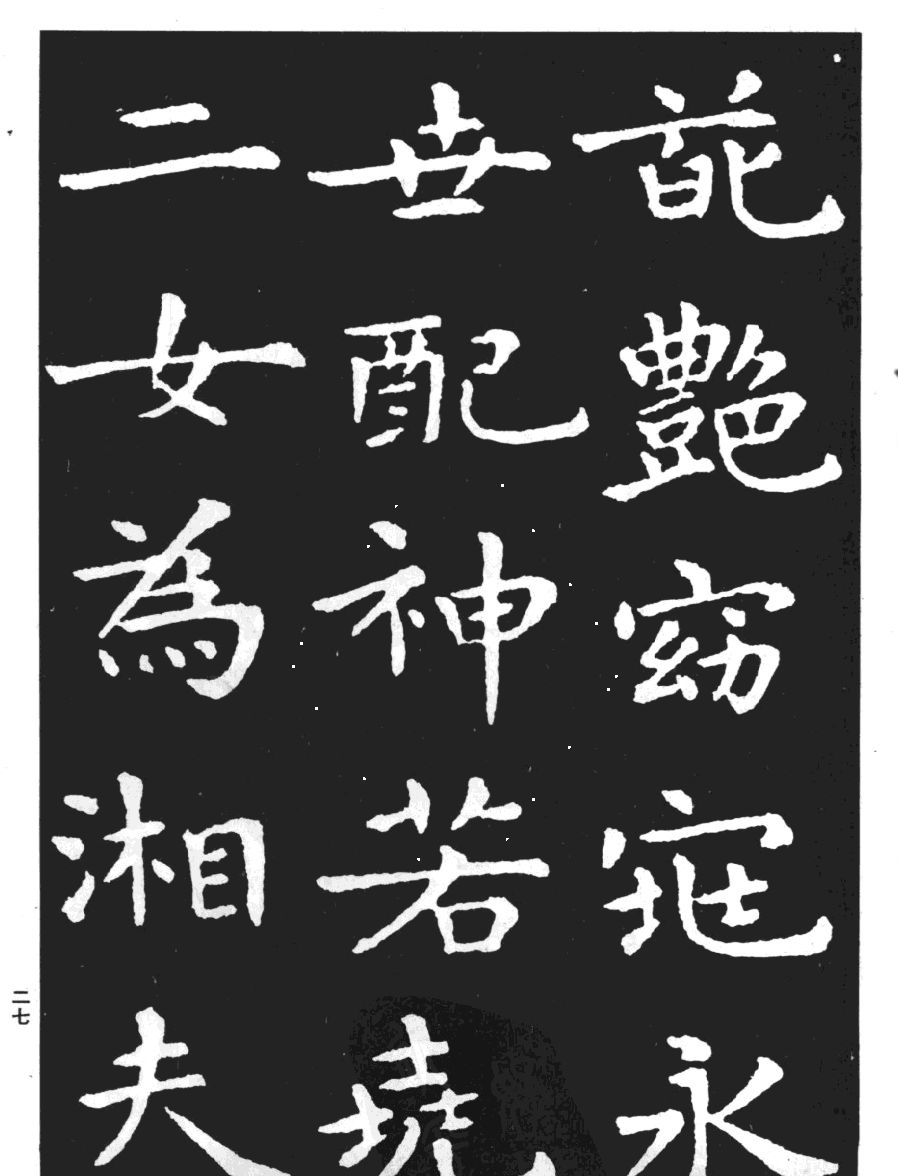 葩艷窈窕永
世配神若堯
二女為湘夫
二七